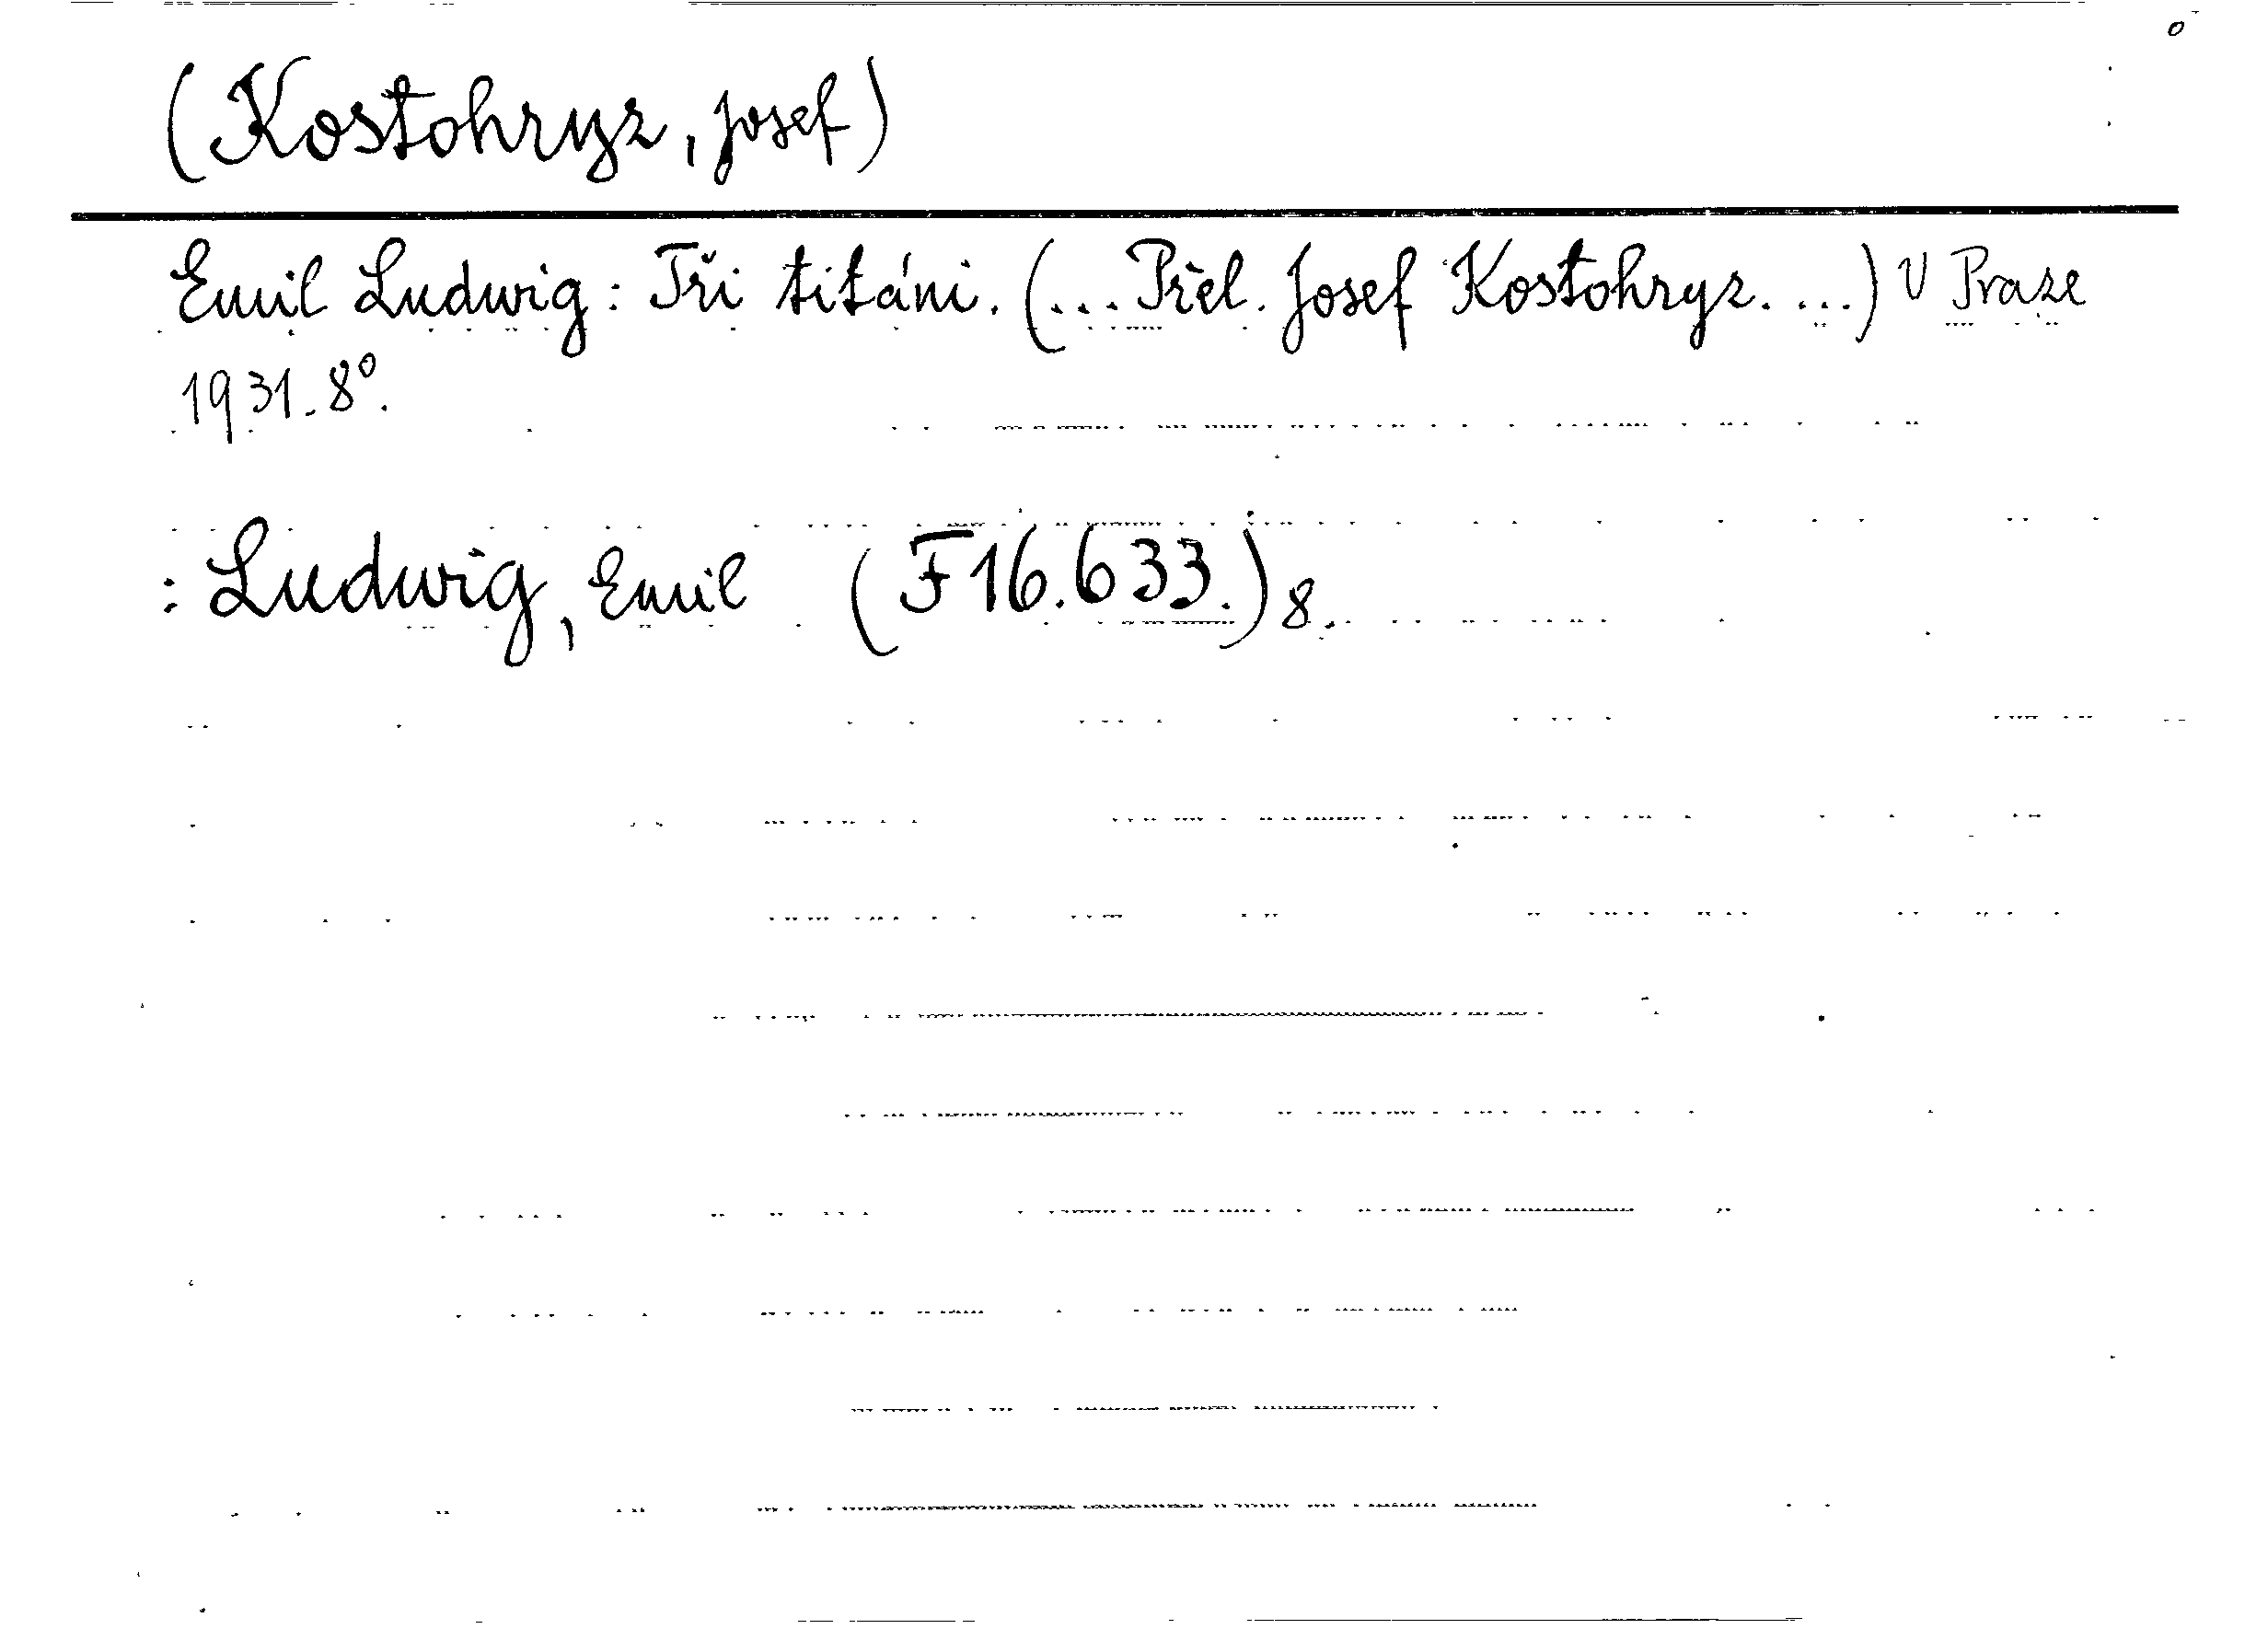 (Kostohryz, Josef)
Emil Ludwig: Tři titáni. (... Přel. Josef Kostohryz. ...) V Praze
1931. 8°.
: Ludwig, Emil (F 16.633.) 8.